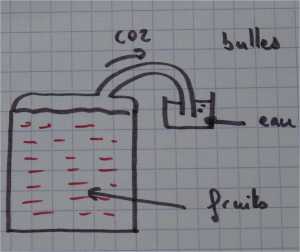 CO2
bulles
eau
fruits